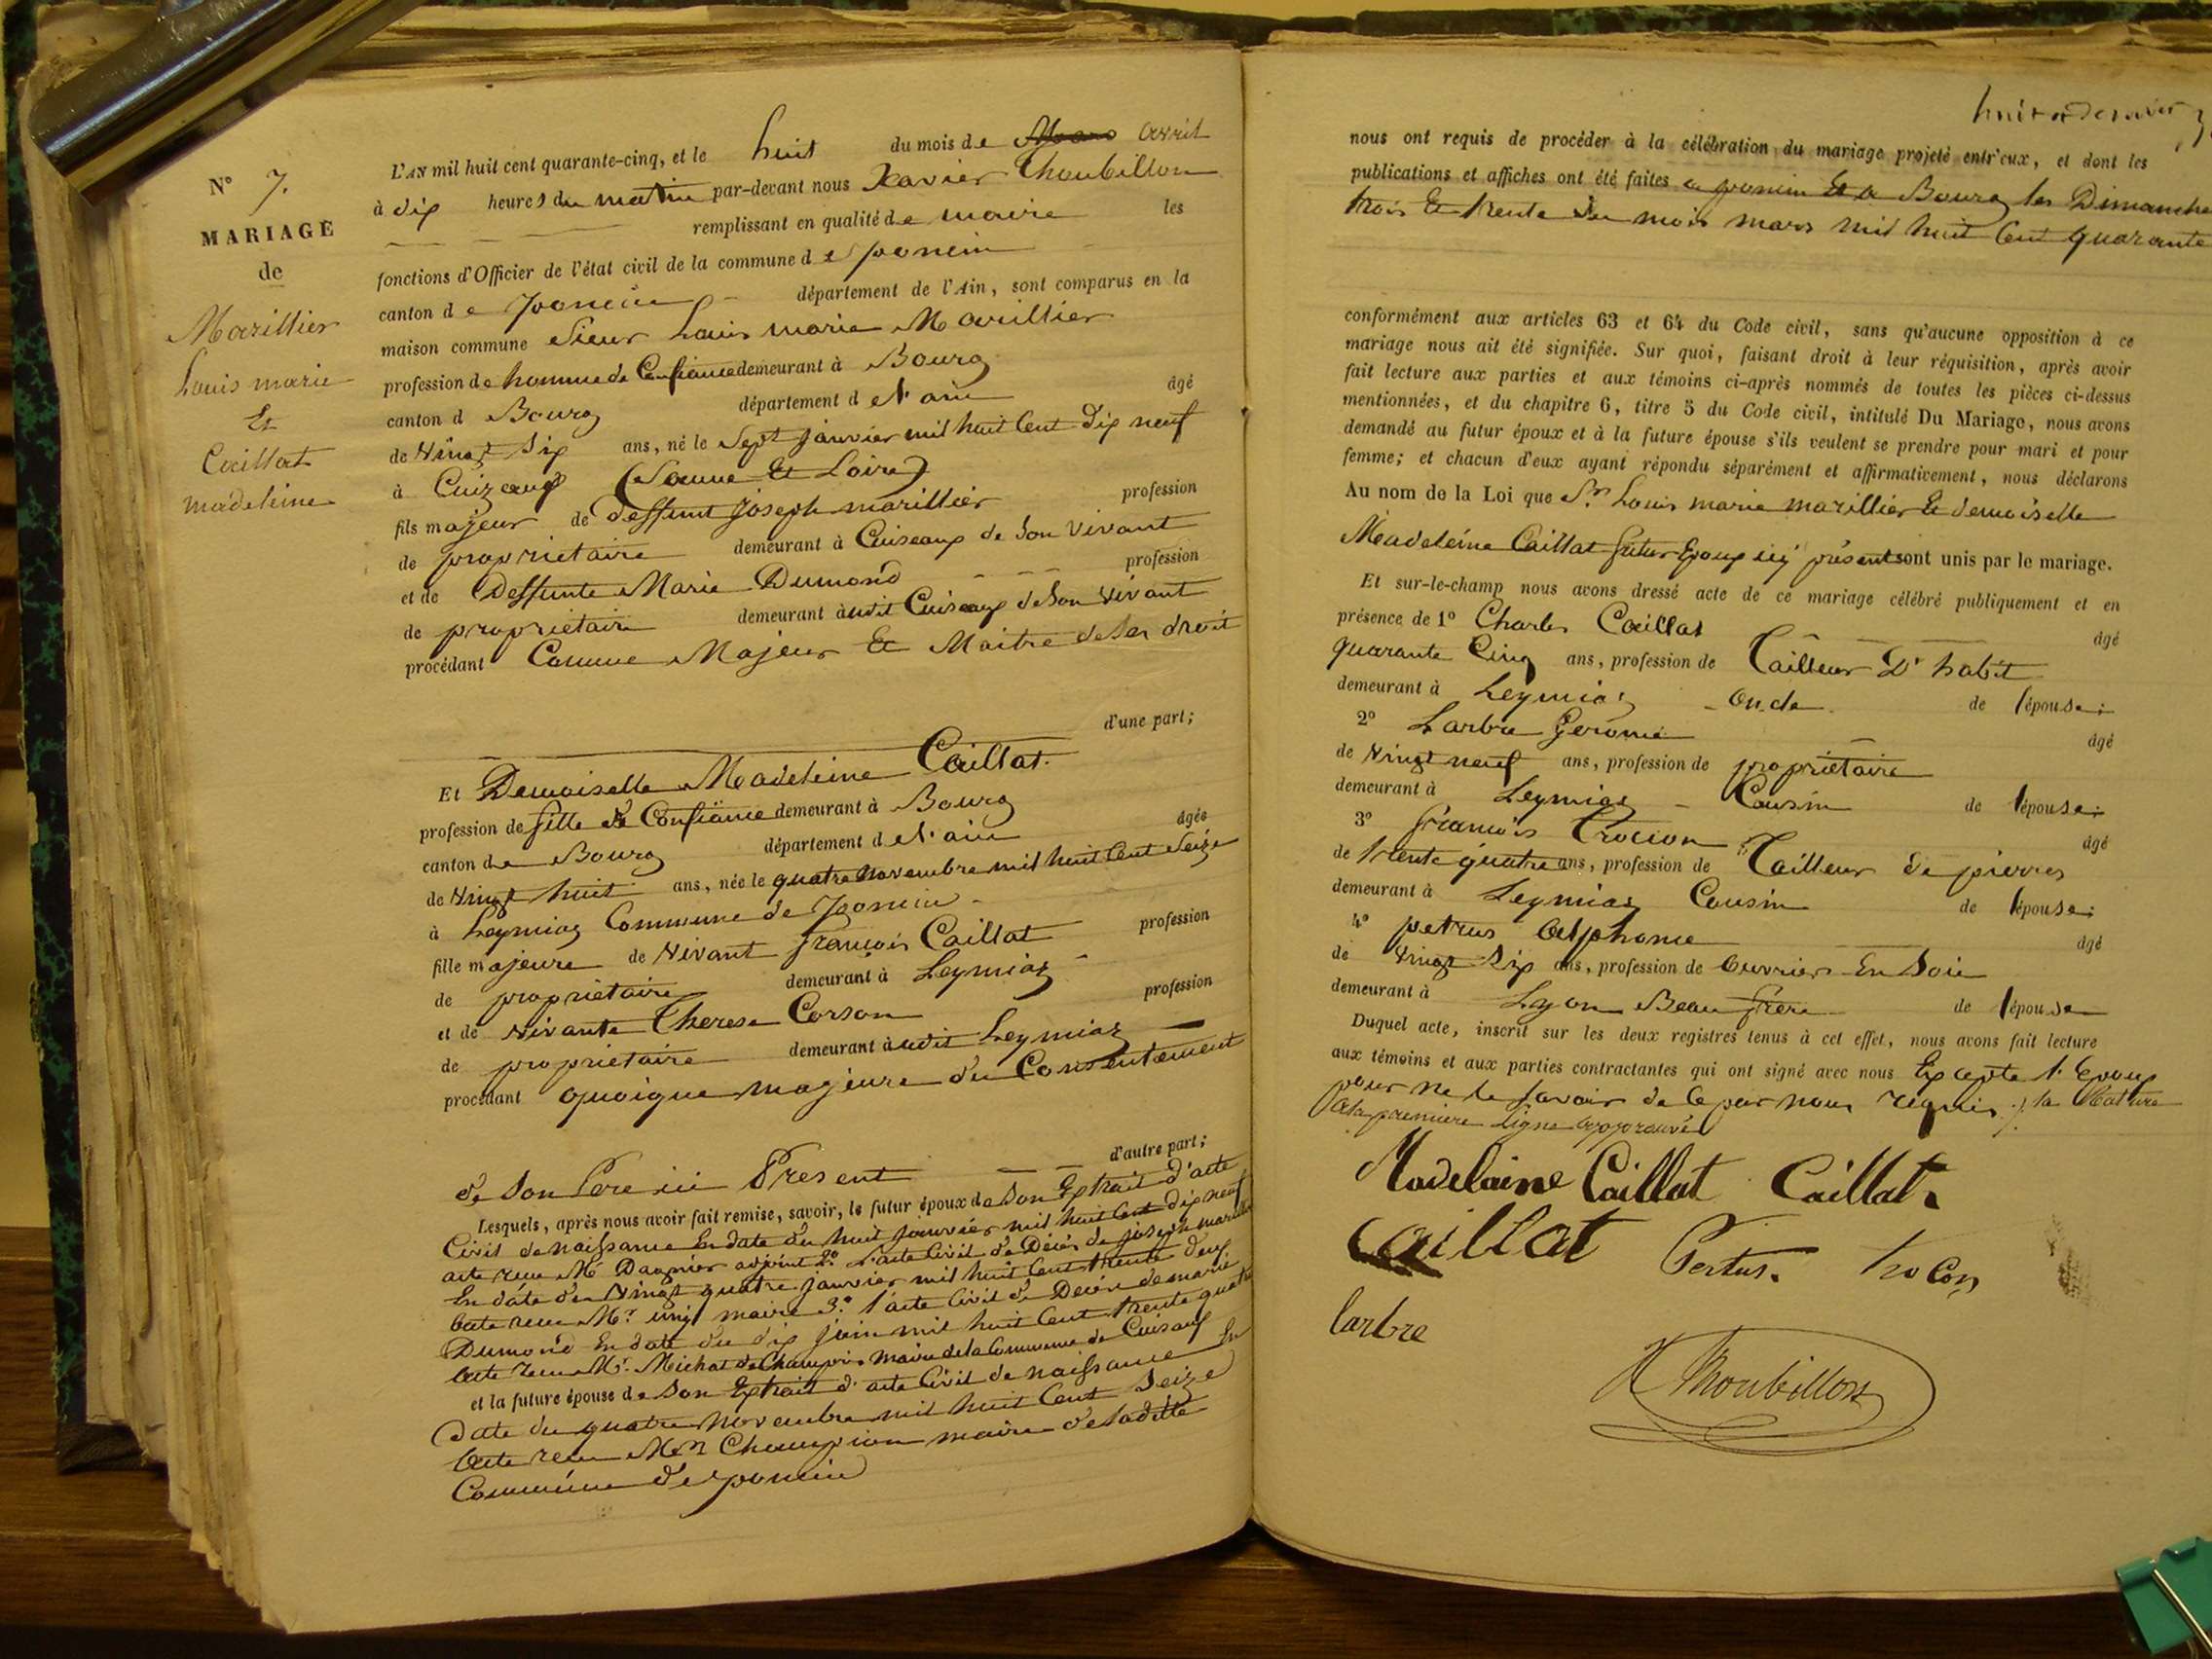 N° 7.
MARIAGE
de
Marillier
Louis marie
Et
Caillat
madeleine
L'AN mil huit cent quarante-cinq, et le huit du mois de Mars avril
à dix heures du matin par-devant nous Xavier Thoubillon
remplissant en qualité de maire les
fonctions d'Officier de l'état civil de la commune de poncin
canton de poncin département de l'Ain, sont comparus en la
maison commune Sieur Louis marie Marillier
profession de homme de Confiance demeurant à Bourg
canton d Bourg département de l'ain âgé
de Vingt Six ans, né le Sept janvier mil huit Cent dix neuf
à Cuizeaux (Saune Et Loire)
fils majeur de deffunt joseph marillier profession
de proprietaire demeurant à Cuiseaux de Son Vivant
et de Deffunte Marie Dumond profession
de propriétaire demeurant audit Cuiseaux de Son Vivant
procédant Comme Majeur Et Maitre de Ses droit
d'une part;
Et Demoiselle Madeleine Caillat.
profession de fille de Confiance demeurant à Bourg
canton de Bourg département de l'ain âgée
de Vingt huit ans, née le quatre novembre mil huit Cent Seize
à Leymiaz Commune de Poncin
fille majeure de Vivant françois Caillat profession
de proprietaire demeurant à Leymiaz
et de vivante Therese Corson profession
de propriétaire demeurant audit Leymiaz
procédant quoique majeure du Consentement
d'autre part;
de Son Pere ici Present
Lesquels, après nous avoir fait remise, savoir, le futur époux de Son Extrait d'acte
Civil de naissance En date du huit janvier mil huit Cent dix neuf
acte reçu Mr Dagnier adjoint 2° l'acte Civil de Décès de joseph
En date du Vingt quatre janvier mil huit Cent trente deux
acte reçu Mr. maire 3.° l'acte Civil de Décès de marie
Dumond En date du dix juin mil huit Cent trente quatre
acte reçu Mr. Michat de Champrois maire de la Commune de Cuiseaux
et la future épouse de Son Extrait d'acte Civil de naissance En
date du quatre Novembre mil huit Cent Seize
acte reçu Mr Champion maire de ladite
Commune de poncin
nous ont requis de procéder à la célébration du mariage projeté entr'eux, et dont les
publications et affiches ont été faites a poncin Et a Bourg les Dimanche
trois Et trente du mois mars mil huit Cent quarante
conformément aux articles 63 et 64 du Code civil, sans qu'aucune opposition à ce
mariage nous ait été signifiée. Sur quoi, faisant droit à leur réquisition, après avoir
fait lecture aux parties et aux témoins ci-après nommés de toutes les pièces ci-dessus
mentionnées, et du chapitre 6, titre 5 du Code civil, intitulé Du Mariage, nous avons
demandé au futur époux et à la future épouse s'ils veulent se prendre pour mari et pour
femme; et chacun d'eux ayant répondu séparément et affirmativement, nous déclarons
Au nom de la Loi que Sr. Louis marie marillier Et demoiselle
Madeleine Caillat futur Epoux icy présent sont unis par le mariage.
Et sur-le-champ nous avons dressé acte de ce mariage célébré publiquement et en
présence de 1° Charles Caillat âgé
quarante Cinq ans, profession de Tailleur D'habit
demeurant à Leymiaz oncle de l'épouse;
2° Larbre Gerome âgé
de Vingt neuf ans, profession de propriétaire
demeurant à Leymiaz Cousin de l'épouse;
3° françois Trocon âgé
de trente quatre ans, profession de Tailleur de pierres
demeurant à Leymiaz Cousin de l'épouse;
4° petrus Alphonse âgé
de Vingt Six ans, profession de Ouvrier En Soie
demeurant à Lyon Beau frère de l'épouse
Duquel acte, inscrit sur les deux registres tenus à cet effet, nous avons fait lecture
aux témoins et aux parties contractantes qui ont signé avec nous Excepte l'Epoux
pour ne le Savoir de Ce par nous requis la Rature
a la premiere Ligne approuvé
Madelaine Caillat Caillat.
Caillat Pertus. trocon
larbre
X Thoubillon